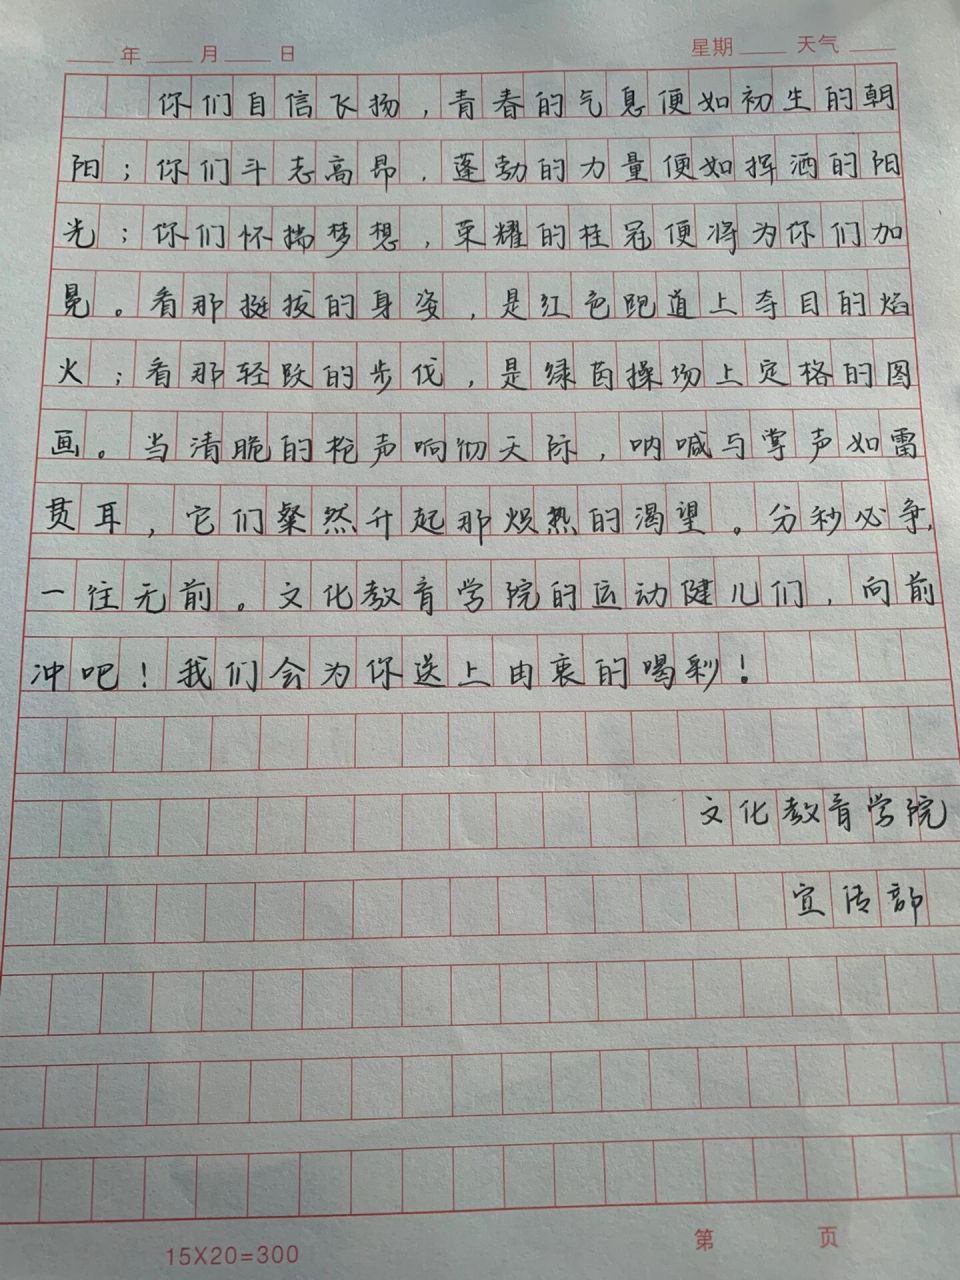 年 月 日 星期 天气
你们自信飞扬，青春的气息便如初生的朝
阳；你们斗志高昂，蓬勃的力量便如挥洒的阳
光；你们怀揣梦想，荣耀的桂冠便将为你们加
冕。看那挺拔的身姿，是红色跑道上夺目的焰
火；看那轻跃的步伐，是绿茵操场上定格的图
画。当清脆的枪声响彻天际，呐喊与掌声如雷
贯耳，它们粲然升起那炽热的渴望。分秒必争，
一往无前。文化教育学院的运动健儿们，向前
冲吧！我们会为你送上由衷的喝彩！
文化教育学院
宣传部
15X20=300 第 页